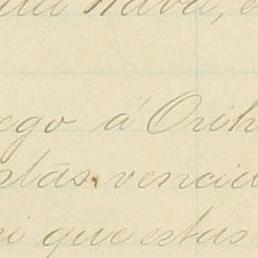 Nava, 
ego á Orih
rtas vencid
i que estas